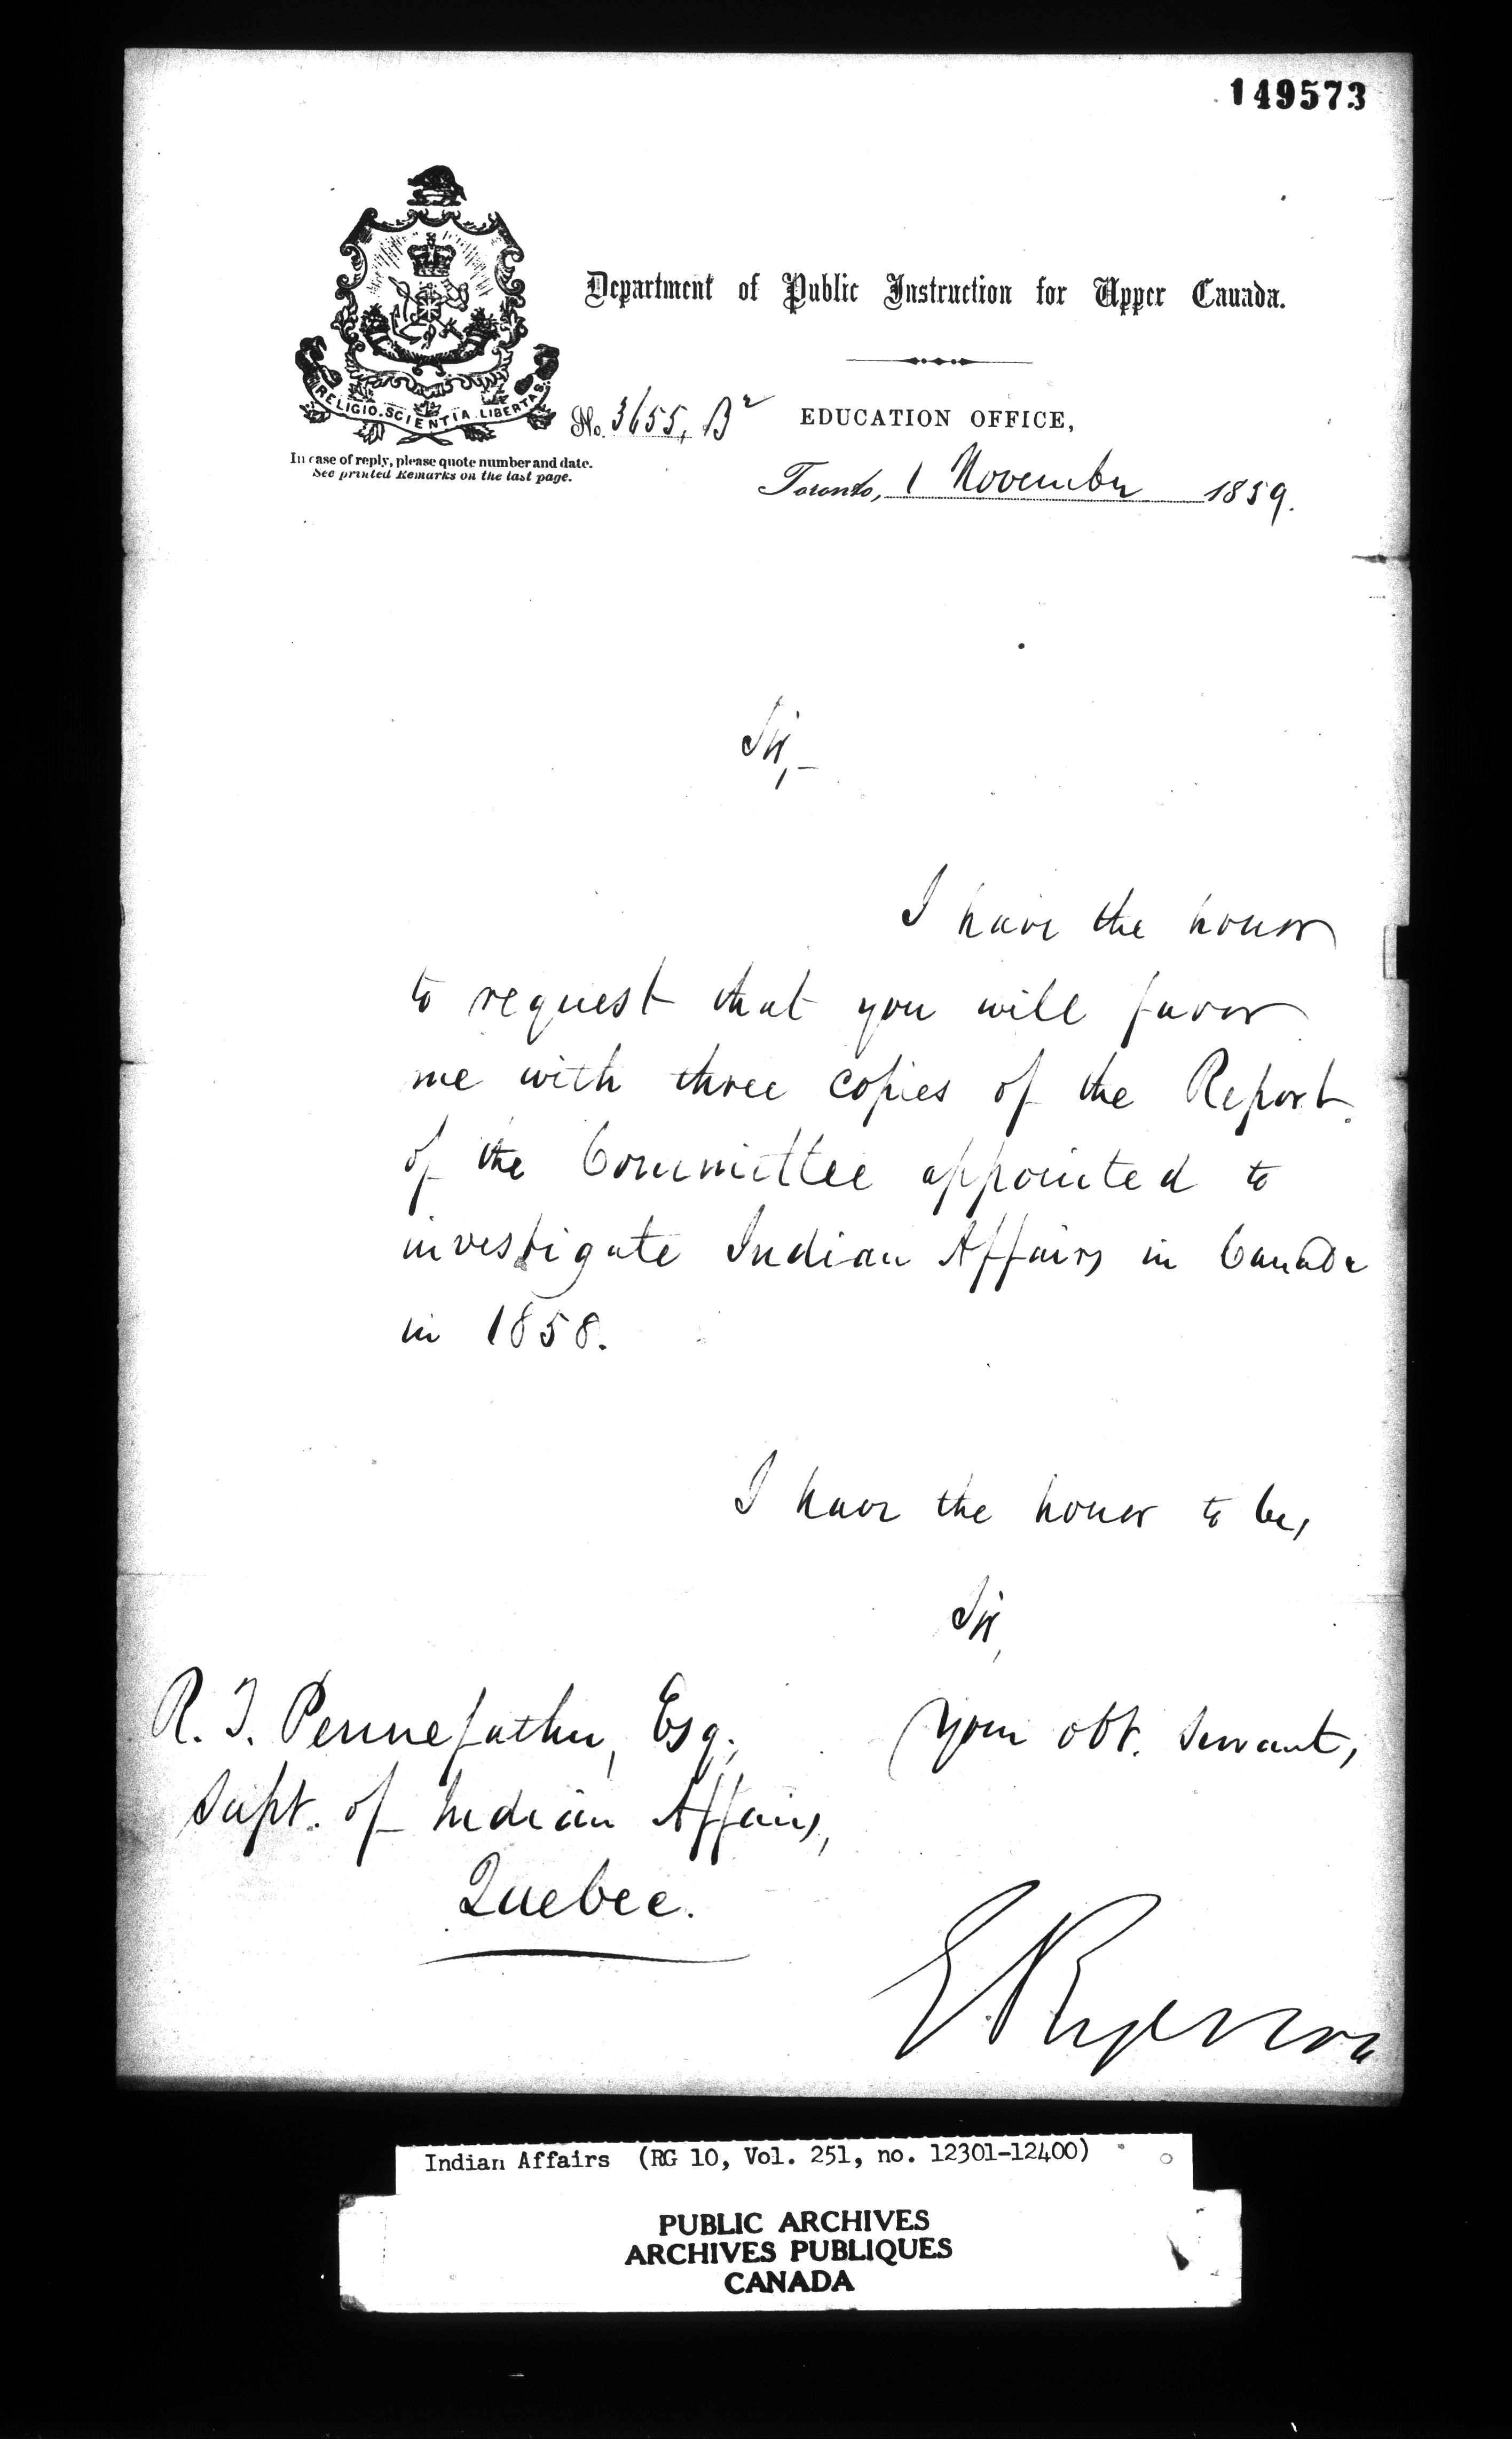 149573
Department of Public Instruction for Upper Canada.
RELIGIO. SCIENTIA. LIBERTAS.
No. 3655, B²
EDUCATION OFFICE,
In case of reply, please quote number and date.
See printed Remarks on the last page.
Toronto, 1 November 1859.
Sir,-
I have the honor
to request that you will favor
me with three copies of the Report
of the Committee appointed to
investigate Indian Affairs in Canada
in 1858.
I have the honor to be,
Sir,
Your obt. servant,
R. T. Pennefather, Esq.,
Supt. of Indian Affairs,
Quebec.
E Ryerson
Indian Affairs (RG 10, Vol. 251, no. 12301-12400)
PUBLIC ARCHIVES
ARCHIVES PUBLIQUES
CANADA